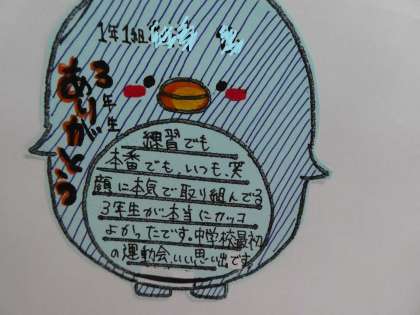 1年1組
3年生
ありがとう
練習でも
本番でも、いつも、笑
顔に本気で取り組んでる
3年生が本当にカッコ
よかったです。中学校最初
の運動会、いい思い出です